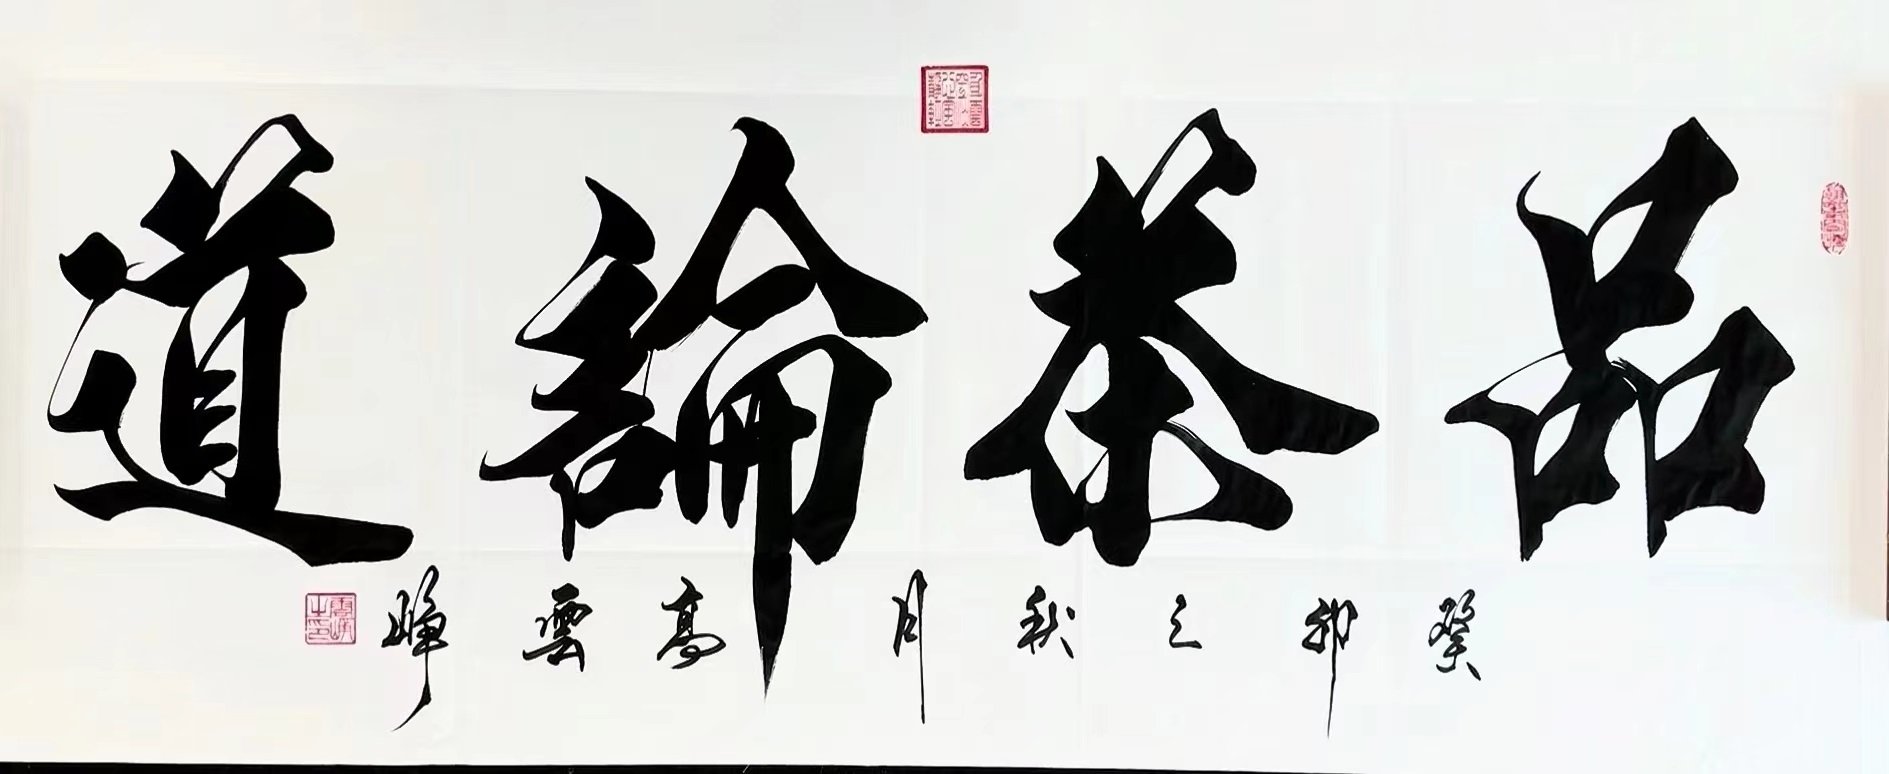 品茶論道
癸卯之秋月高雲崢